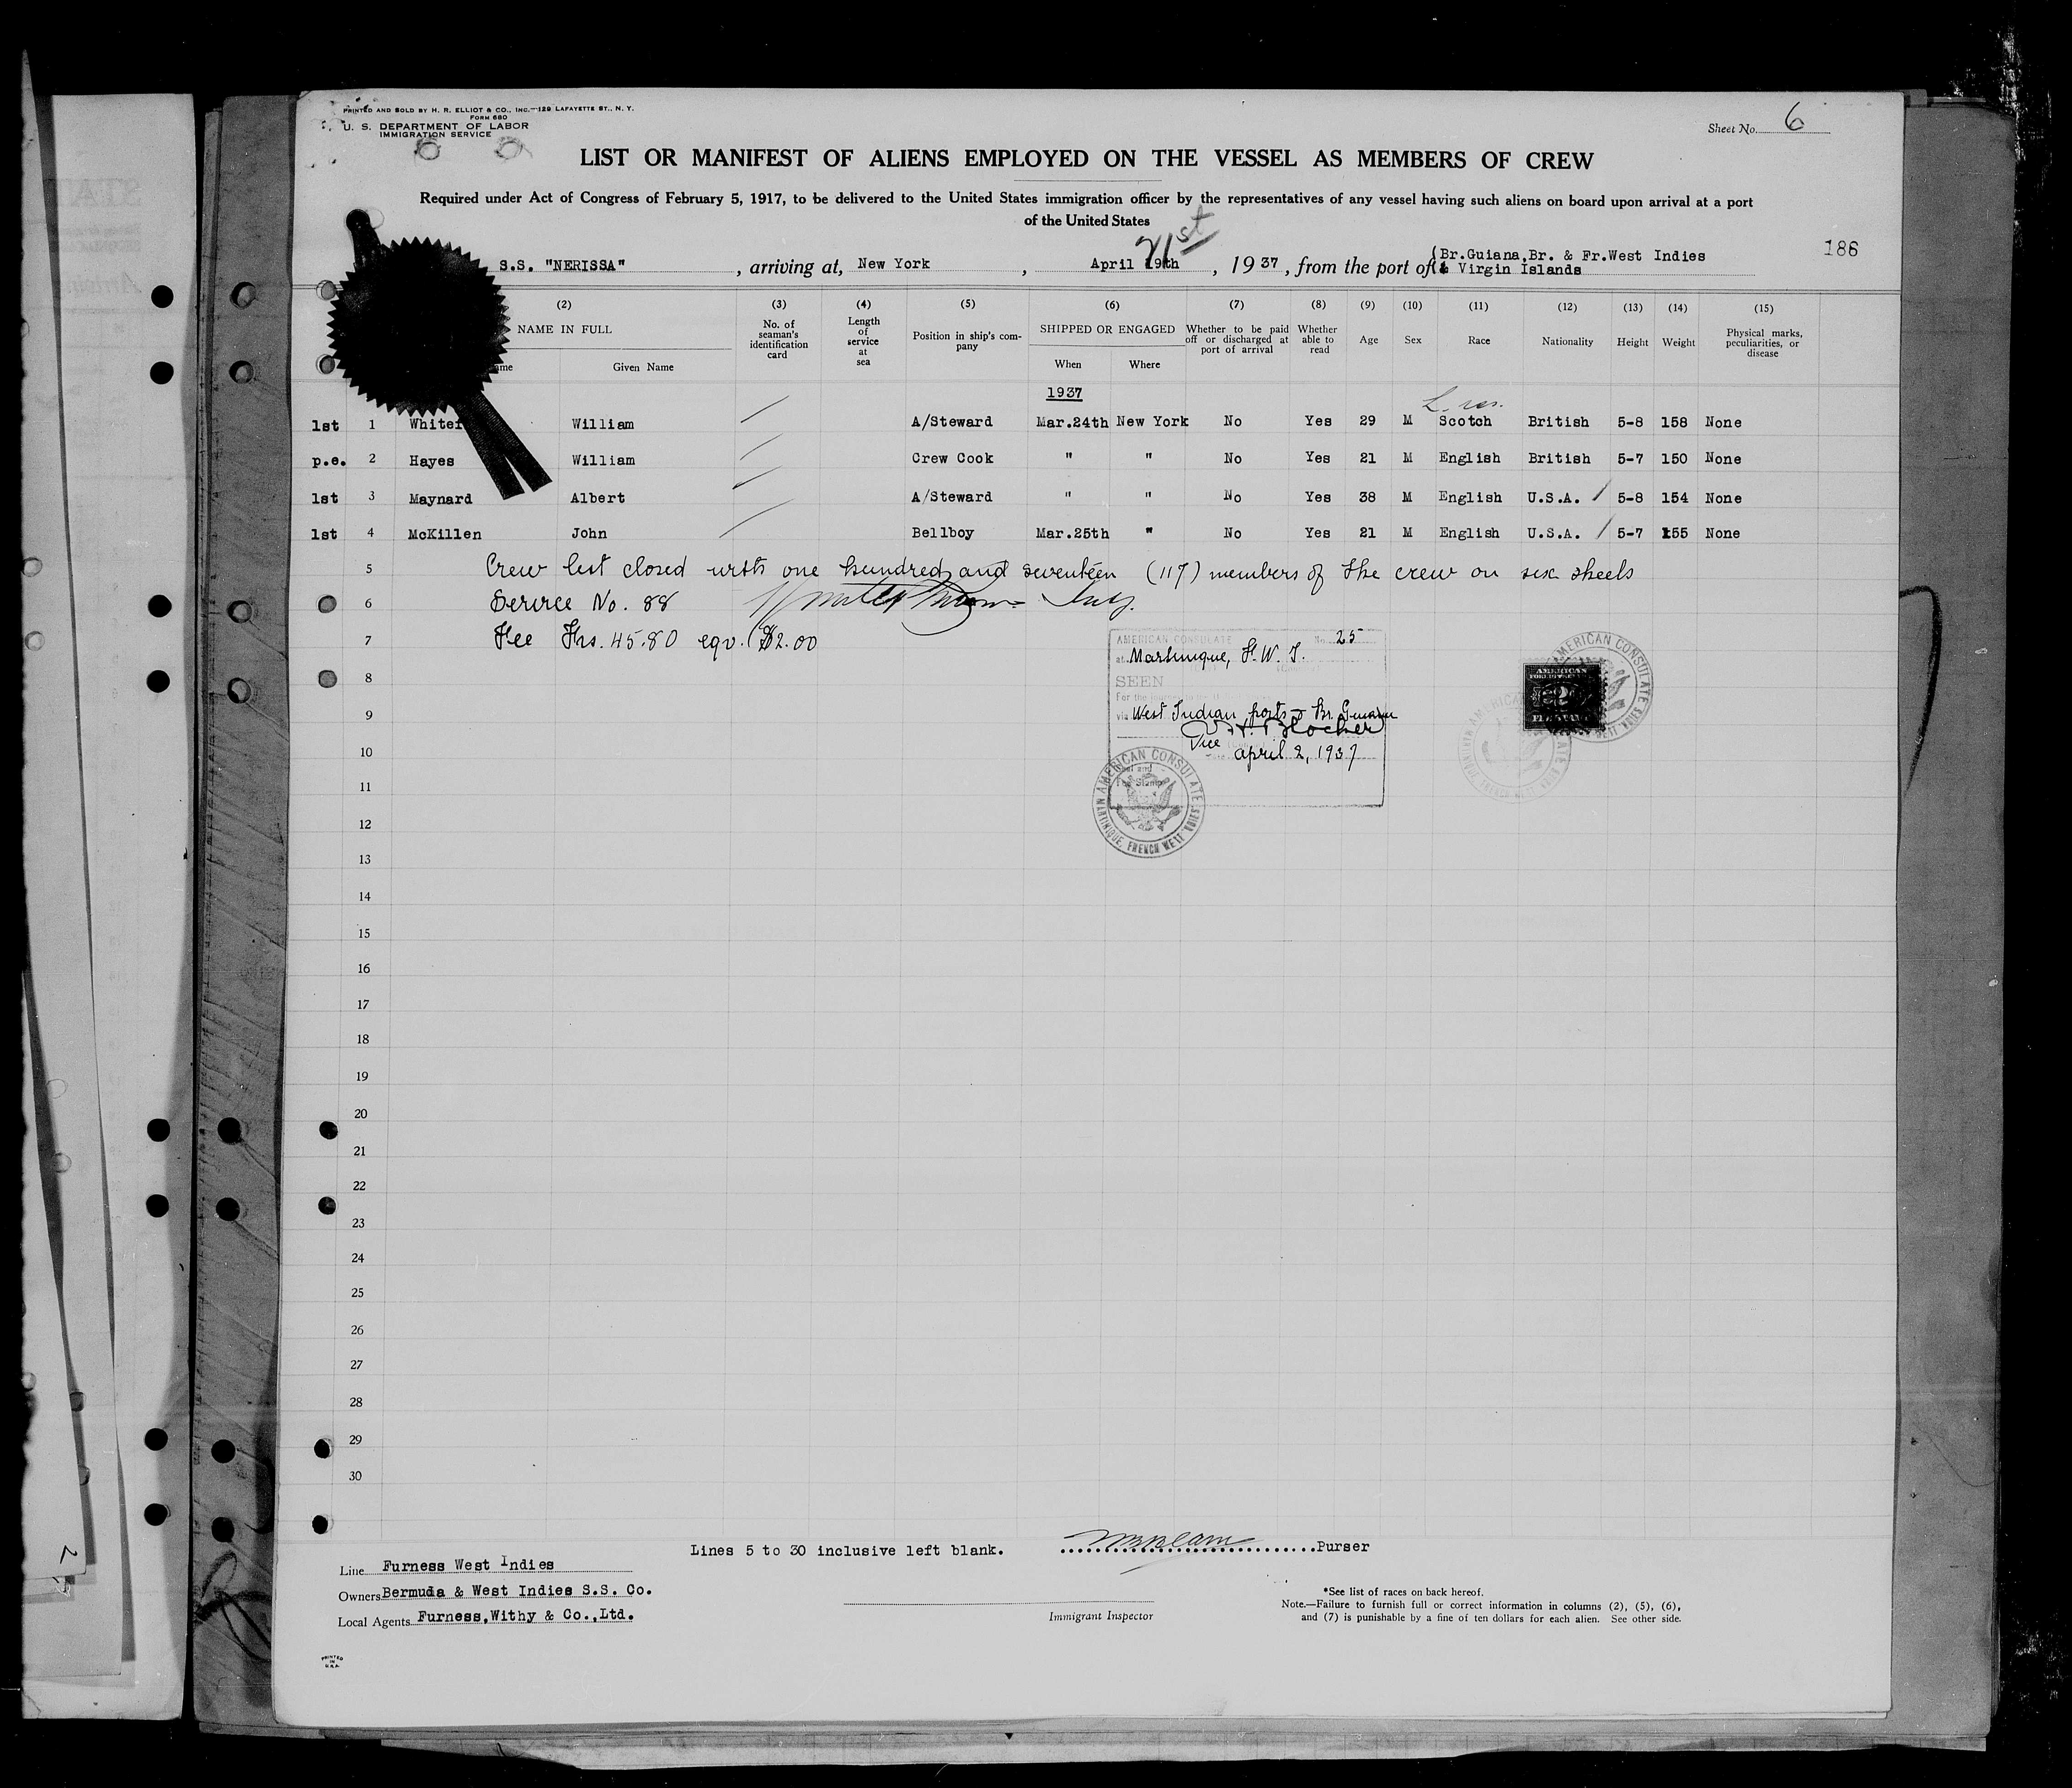 PRINTED AND SOLD BY H. R. ELLIOT & CO., INC.—129 LAFAYETTE ST., N. Y.
FORM 680
U. S. DEPARTMENT OF LABOR
IMMIGRATION SERVICE
Sheet No. 6
LIST OR MANIFEST OF ALIENS EMPLOYED ON THE VESSEL AS MEMBERS OF CREW
Required under Act of Congress of February 5, 1917, to be delivered to the United States immigration officer by the representatives of any vessel having such aliens on board upon arrival at a port
of the United States
21st
S.S. "NERISSA", arriving at, New York, April 19th, 1937, from the port of (Br.Guiana,Br. & Fr.West Indies
& Virgin Islands
186
(2) (3) (4) (5) (6) (7) (8) (9) (10) (11) (12) (13) (14) (15)
NAME IN FULL No. of seaman's identification card Length of service at sea Position in ship's company SHIPPED OR ENGAGED Whether to be paid off or discharged at port of arrival Whether able to read Age Sex Race Nationality Height Weight Physical marks, peculiarities, or disease
Given Name When Where
1937
1st 1 William A/Steward Mar.24th New York No Yes 29 M Scotch British 5-8 158 None
p.e. 2 Hayes William Crew Cook " " No Yes 21 M English British 5-7 150 None
1st 3 Maynard Albert A/Steward " " No Yes 38 M English U.S.A. / 5-8 154 None
1st 4 McKillen John Bellboy Mar.25th " No Yes 21 M English U.S.A. / 5-7 155 None
5 Crew list closed with one hundred and seventeen (117) members of the crew on six sheets
6 Service No. 88
7 Fee Frs. 45.80 eqv. ($2.00
AMERICAN CONSULATE No. 25
at Martinique, F.W.I.
SEEN
For the journey to the
via West Indian ports & Br. Guiana
Vice
April 2, 1937
AMERICAN CONSULATE
MARTINIQUE, FRENCH WEST INDIES
AMERICAN
2
AMERICAN CONSULATE
8
9
10
11
12
13
14
15
16
17
18
19
20
21
22
23
24
25
26
27
28
29
30
Lines 5 to 30 inclusive left blank. Purser
Line Furness West Indies
Owners Bermuda & West Indies S.S. Co.
Local Agents Furness,Withy & Co.,Ltd.
Immigrant Inspector
*See list of races on back hereof.
Note.—Failure to furnish full or correct information in columns (2), (5), (6),
and (7) is punishable by a fine of ten dollars for each alien. See other side.
PRINTED
IN
U.S.A.